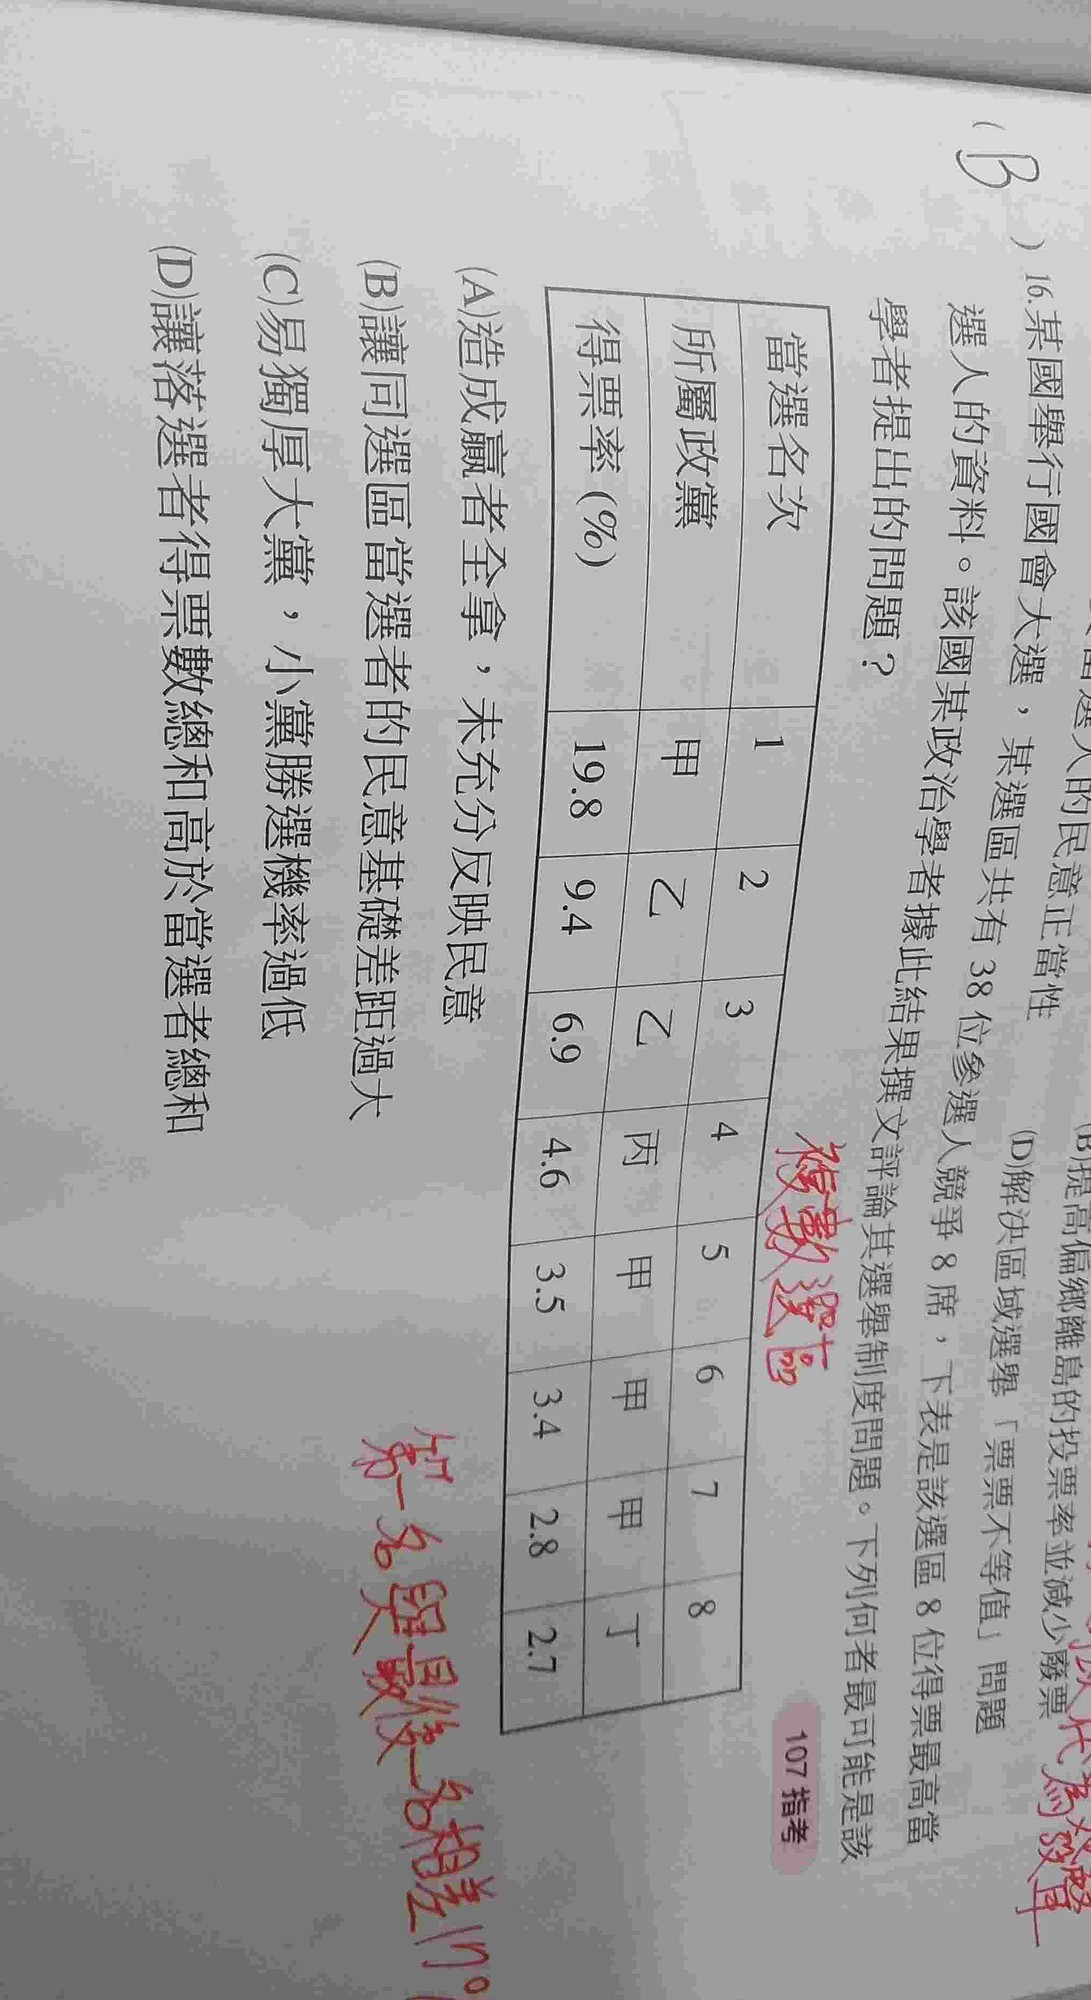 當選人的民意正當性
(B)提高偏鄉離島的投票率並減少廢票
(D)解決區域選舉「票票不等值」問題
代為發聲
( B ) 16.某國舉行國會大選，某選區共有 38 位參選人競爭 8 席，下表是該選區 8 位得票最高當
選人的資料。該國某政治學者據此結果撰文評論其選舉制度問題。下列何者最可能是該
學者提出的問題？
複數選區
107 指考
當選名次 1 2 3 4 5 6 7 8
所屬政黨 甲 乙 乙 丙 甲 甲 甲 丁
得票率 (%) 19.8 9.4 6.9 4.6 3.5 3.4 2.8 2.7
(A)造成贏者全拿，未充分反映民意
(B)讓同選區當選者的民意基礎差距過大
第一名與最後一名相差17%
(C)易獨厚大黨，小黨勝選機率過低
(D)讓落選者得票數總和高於當選者總和